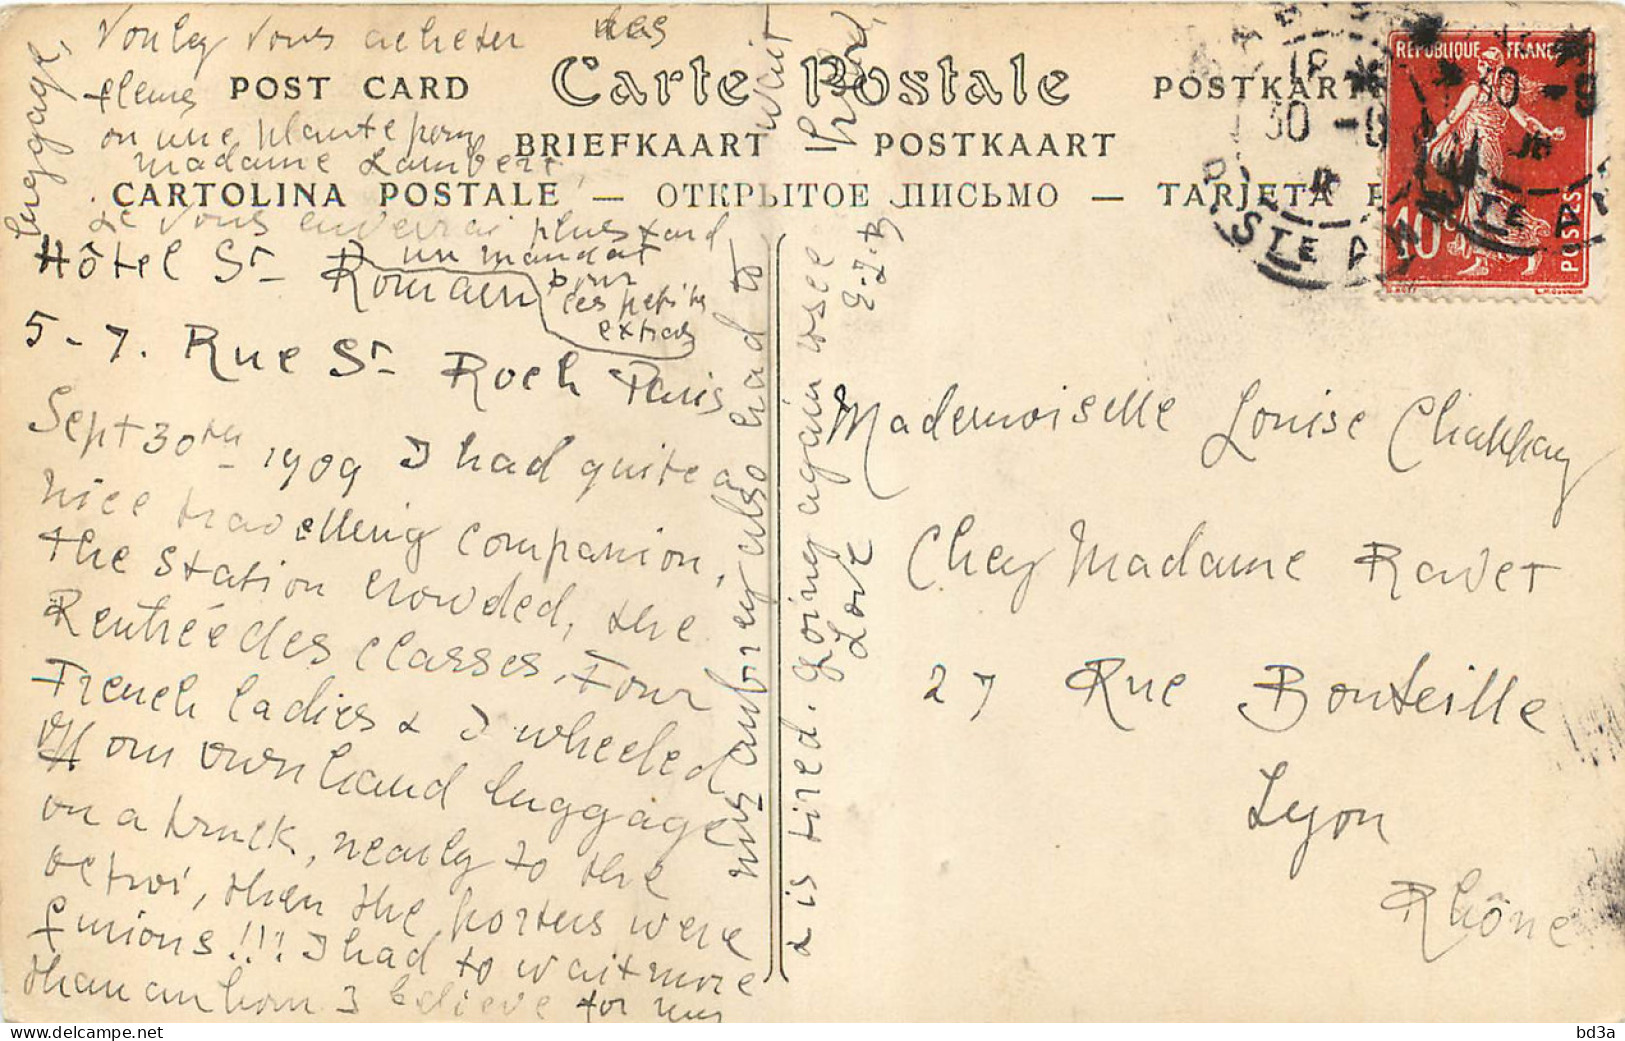 Voulez vous acheter des
fleurs
ou une plante pour
madame Lambert,
Je vous enverrai plus tard
un mandat
pour
les petits
extras
POST CARD
Carte Postale
POSTKARTE
BRIEFKAART — POSTKAART
CARTOLINA POSTALE — ОТКРЫТОЕ ПИСЬМО — TARJETA P
Hôtel St Romain
5-7. Rue St Roch Paris
Sept 30th 1909 I had quite a
nice travelling companion,
the station crowded, the
Rentrée des classes. Four
French ladies & I wheeled
off our own hand luggage
on a truck, nearly to the
octroi, then the porters were
furious!!! I had to wait more
than an hour I believe for my
luggage,
Miss Aubrey also had to
wait
& is tired. Going again to see
Love
E-J-B
Mademoiselle Louise
Chez Madame Ravet
27 Rue Bouteille
Lyon
Rhône
REPUBLIQUE FRANÇ
10c
POSTES
PARIS
18
30 -9
STE AN
30 -9
STE A
bd3a